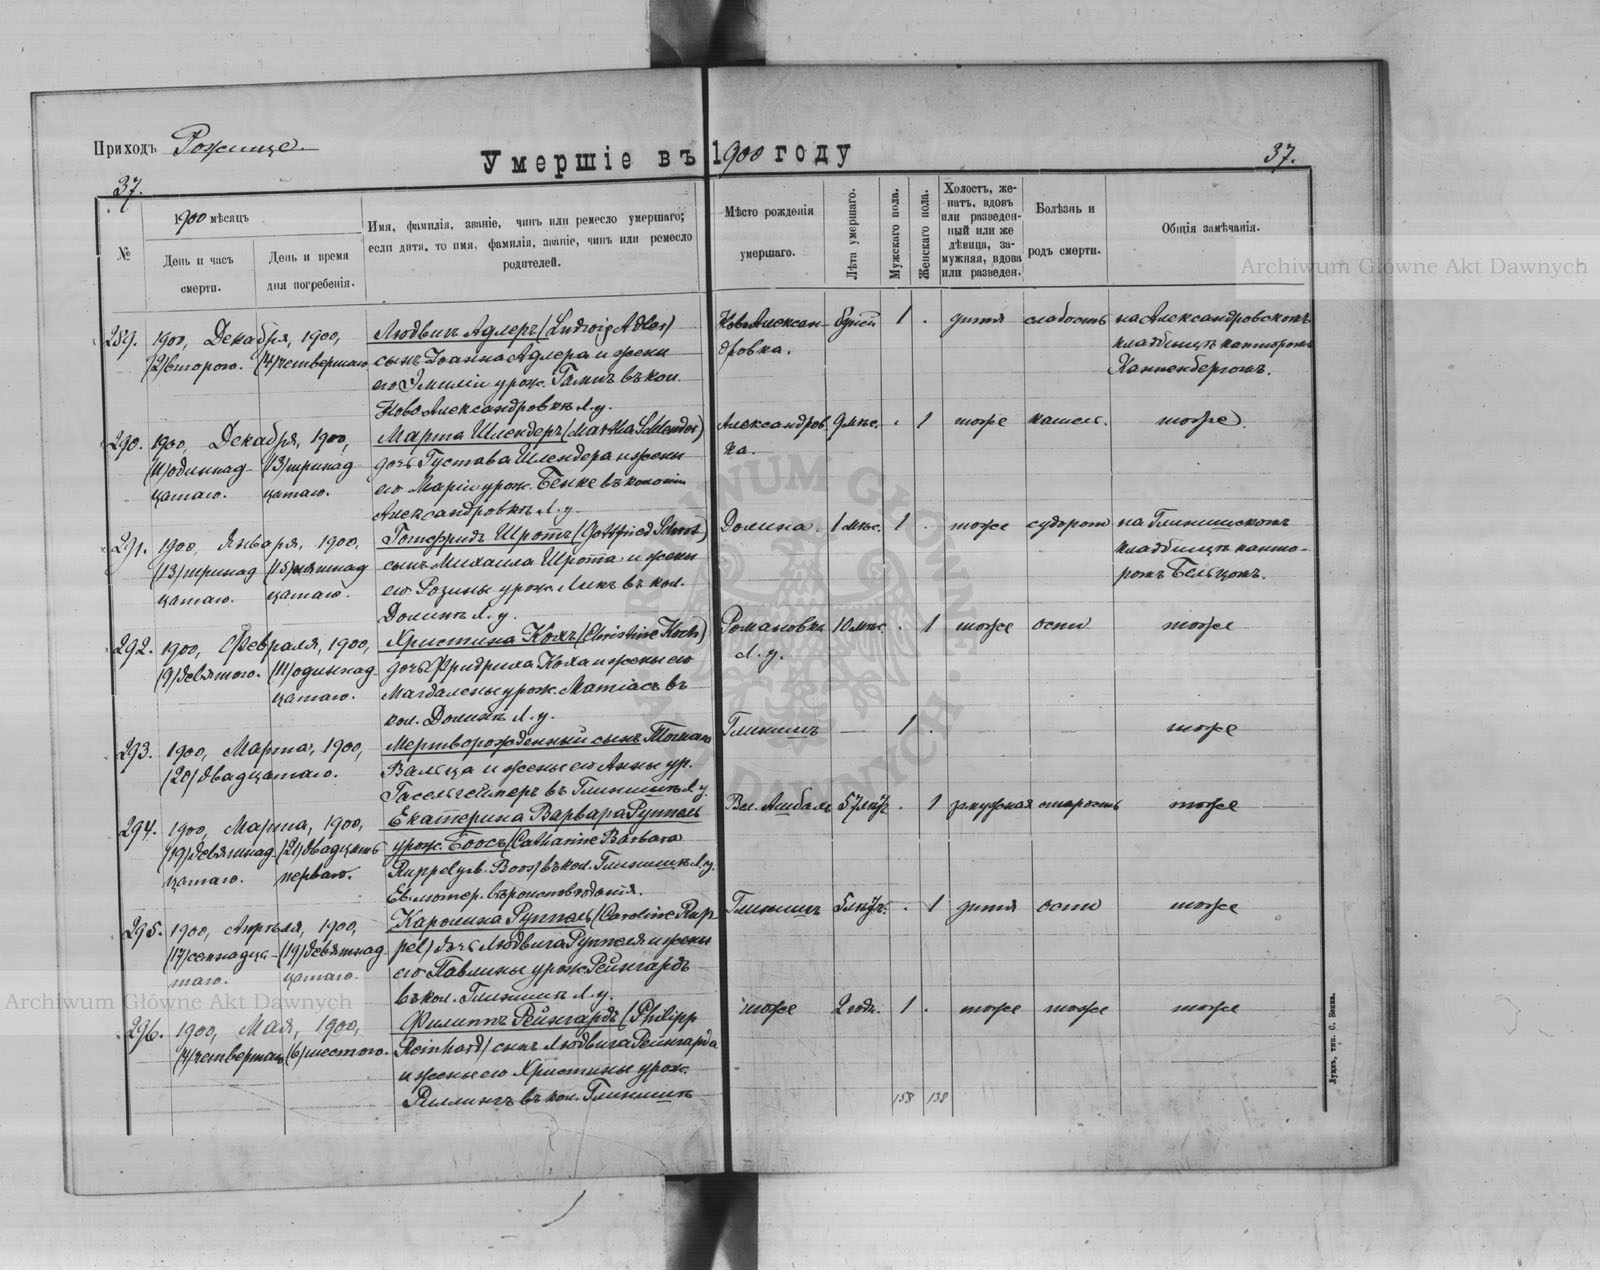 Приходъ Рожище.
Умершіе въ 1900 году
37.
37.
№
1900 мѣсяцъ
День и часъ смерти.
День и время дня погребенія.
Имя, фамилія, званіе, чинъ или ремесло умершаго;
если дитя, то имя, фамилія, званіе, чинъ или ремесло
родителей.
Мѣсто рожденія
умершаго.
Лѣта умершаго.
Мужскаго пола.
Женскаго пола.
Холостъ, же-
натъ, вдовъ
или разведен-
ный или же
дѣвица, за-
мужняя, вдова
или разведен.
Болѣзнь и
родъ смерти.
Общія замѣчанія.
289. 1900, Декабря, 1900, Людвигъ Адлеръ (Ludwig Adler) Ново Алексан- 1 . дитя слабость на Александровскомъ
(2) второго. (4) четвертаго сынъ Іоанна Адлера и жены дровка. кладбищѣ канторомъ
его Эмиліи урож. въ кол. Канненбергомъ.
Ново Александровкѣ Л. у.
290. 1900, Декабря, 1900, Марта Шлендеръ (Martha Schlender) Александров- 9 мѣс. . 1 тоже кашель. тоже.
(11) одиннад- (13) тринад- дочь Густава Шлендера и жены ка.
цатаго. цатаго. его Маріи урож. Бенке въ колоніи
Александровкѣ Л. у.
291. 1900, Января, 1900, Готфридъ Шротъ (Gottfried Schrot) Долина. 1 мѣс. 1 . тоже судорог на Глинищскомъ
(13) тринад (15) пятнад сынъ Михаила Шрота и жены кладбищѣ канто-
цатаго. цатаго. его Розины урож. въ кол. ромъ
Долинѣ Л. у.
292. 1900, Февраля, 1900, Христина Кохъ (Christine Koch) Романовка 10 мѣс . 1 тоже оспы тоже
(9) девятого. (11) одиннад- дочь Фридриха Коха и жены его Л. у.
цатаго. Магдалены урож. Матіасъ въ
кол. Долинѣ Л. у.
293. 1900, Марта, 1900, Мертворожденный сынъ Глинищъ — 1 . тоже
(20) двадцатаго. Вальца и жены его Анны ур.
въ Глинищѣ Л. у.
294. 1900, Марта, 1900, Екатерина Варвара Руппель 57 лѣтъ . 1 замужняя старость тоже
(19) девятнад- (21) двадцать урож. Боосъ (Catharine Barbara
цатаго. перваго. Ruppel geb. Boos) въ кол. Глинищѣ Л. у.
Ев. лютер. вѣроисповѣданія.
295. 1900, Апрѣля, 1900, Каролина Руппель (Caroline Rup- Глинищъ 5 лѣтъ. . 1 дитя оспы тоже
(17) семнадца- (19) девятнад- pel) дочь Людвига Руппеля и жены
таго. цатаго. его Павлины урож. Рейнгардъ
въ кол. Глинищѣ Л. у.
296. 1900, Мая, 1900, Филиппъ Рейнгардъ (Philipp тоже 2 года. 1 . тоже тоже тоже
(4) четвертаго (6) шестого. Reinhard) сынъ Людвига Рейнгарда
и жены его Христины урож.
въ кол. Глинищѣ
158 138
Луцкъ, тип. С. Бонка.
Archiwum Główne Akt Dawnych
Archiwum Główne Akt Dawnych
ARCHIWUM GŁÓWNE AKT DAWNYCH